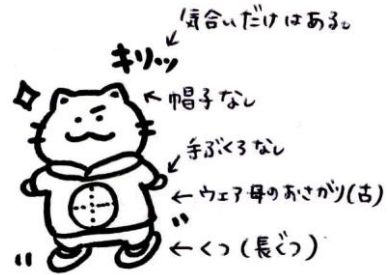 気合いだけはある。
キリッ
帽子なし
手ぶくろなし
ウェア母のおさがり(古)
くつ(長ぐつ)